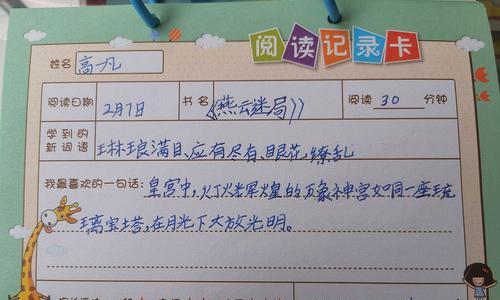 阅读记录卡
姓名 高凡
阅读日期 2月7日 书名 《燕云迷局》 阅读 30 分钟
学到的
新词语 琳琅满目、应有尽有、眼花缭乱
我最喜欢的一句话:皇宫中,灯烛星火星的万象神宫如同一座琉
璃宝塔,在月光下大放光明。